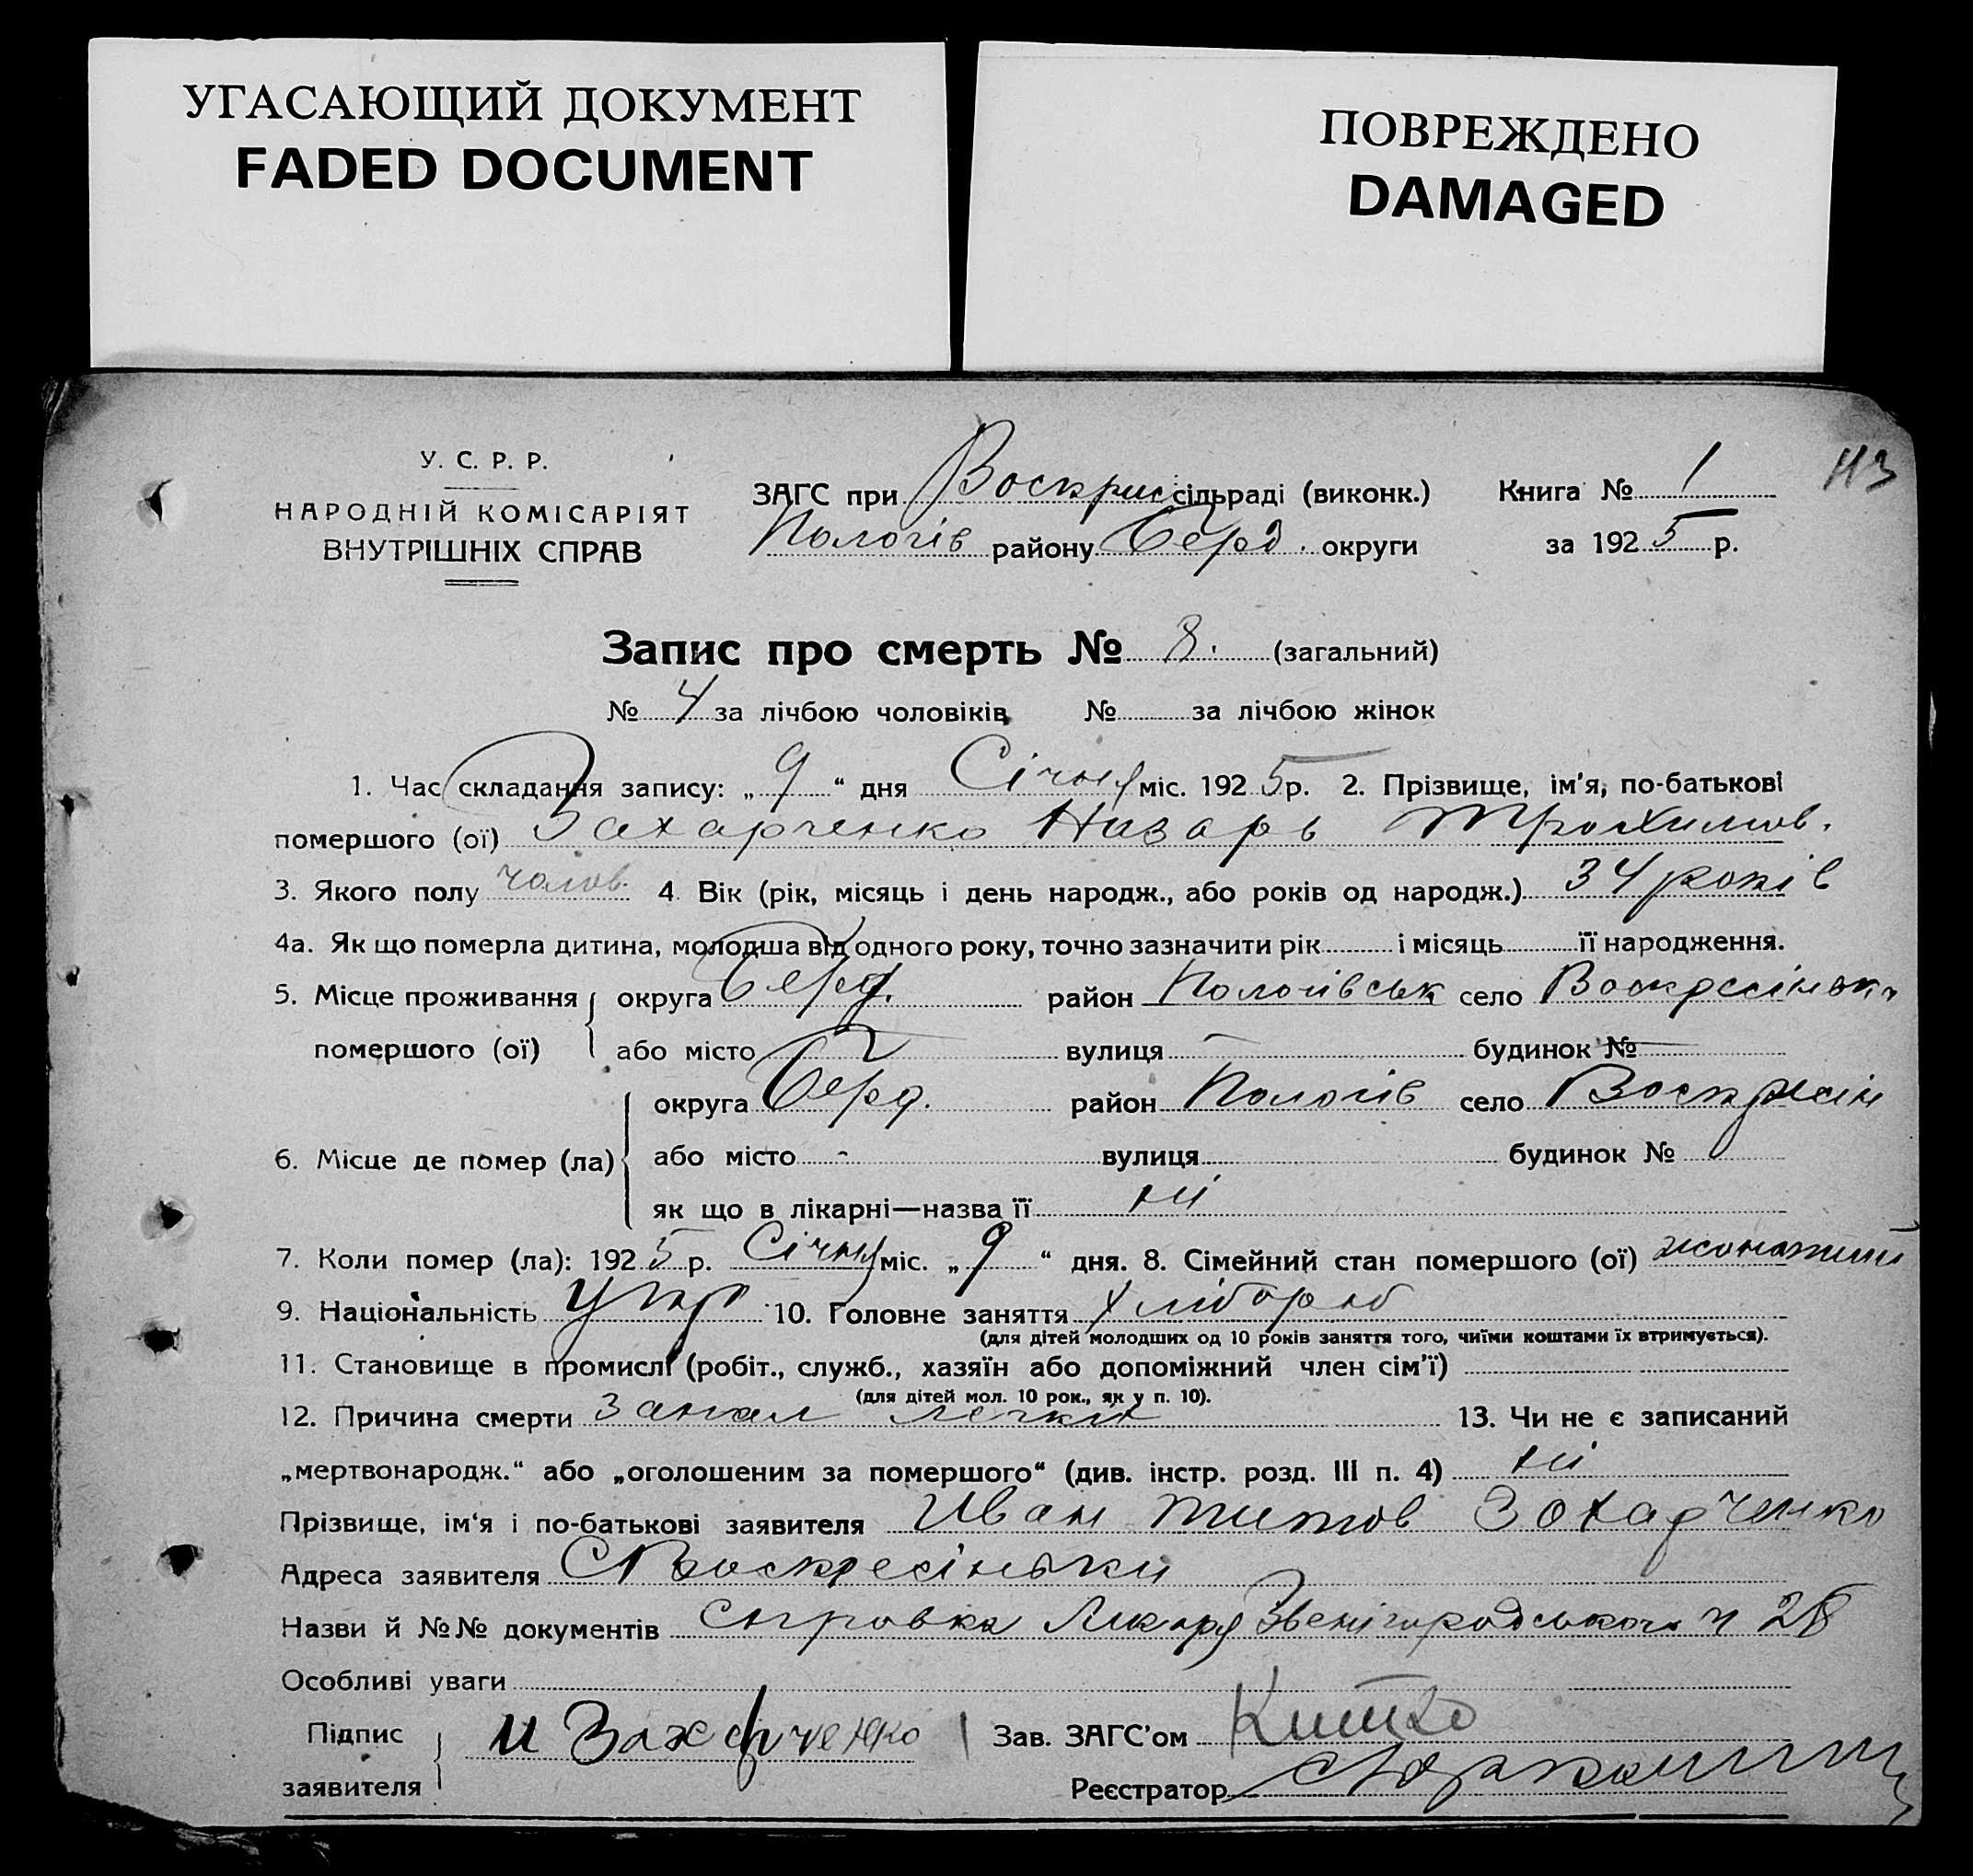 УГАСАЮЩИЙ ДОКУМЕНТ
FADED DOCUMENT
ПОВРЕЖДЕНО
DAMAGED
113
У. С. Р. Р.
НАРОДНІЙ КОМІСАРІЯТ
ВНУТРІШНІХ СПРАВ
ЗАГС при Воскрис сільраді (виконк.) Книга № 1
Пологів району Берд. округи за 1925 р.
Запис про смерть № 8. (загальний)
№ 4 за лічбою чоловіків, № за лічбою жінок
1. Час складання запису: „9“ дня Січня міс. 1925 р. 2. Прізвище, ім'я, по-батькові
помершого (ої) Захарченко Назарь Трохимов.
3. Якого полу чолов. 4. Вік (рік, місяць і день народж., або років од народж.) 34 років
4а. Як що померла дитина, молодша від одного року, точно зазначити рік і місяць її народження.
5. Місце проживання округа Берд. район Пологівськ село Воскресінька
помершого (ої) або місто вулиця — будинок № —
округа Берд. район Пологів село Воскресін
6. Місце де помер (ла) або місто - вулиця будинок №
як що в лікарні—назва її ні
7. Коли помер (ла): 1925 р. Січня міс. „9“ дня. 8. Сімейний стан помершого (ої) жонатий
9. Національність Укр 10. Головне заняття хлібороб
(для дітей молодших од 10 років заняття того, чиїми коштами їх втримується).
11. Становище в промислі (робіт., служб., хазяїн або допоміжний член сім'ї)
(для дітей мол. 10 рок., як у п. 10).
12. Причина смерти Запал легкіх 13. Чи не є записаний
„мертвонародж.“ або „оголошеним за помершого“ (див. інстр. розд. III п. 4) ні
Прізвище, ім'я і по-батькові заявителя Иван Титов Захарченко
Адреса заявителя С Воскресіньки
Назви й №№ документів Справка Лікаря Звенігородського
Особливі уваги
Підпис И Захарченко Зав. ЗАГС'ом
заявителя Реєстратор